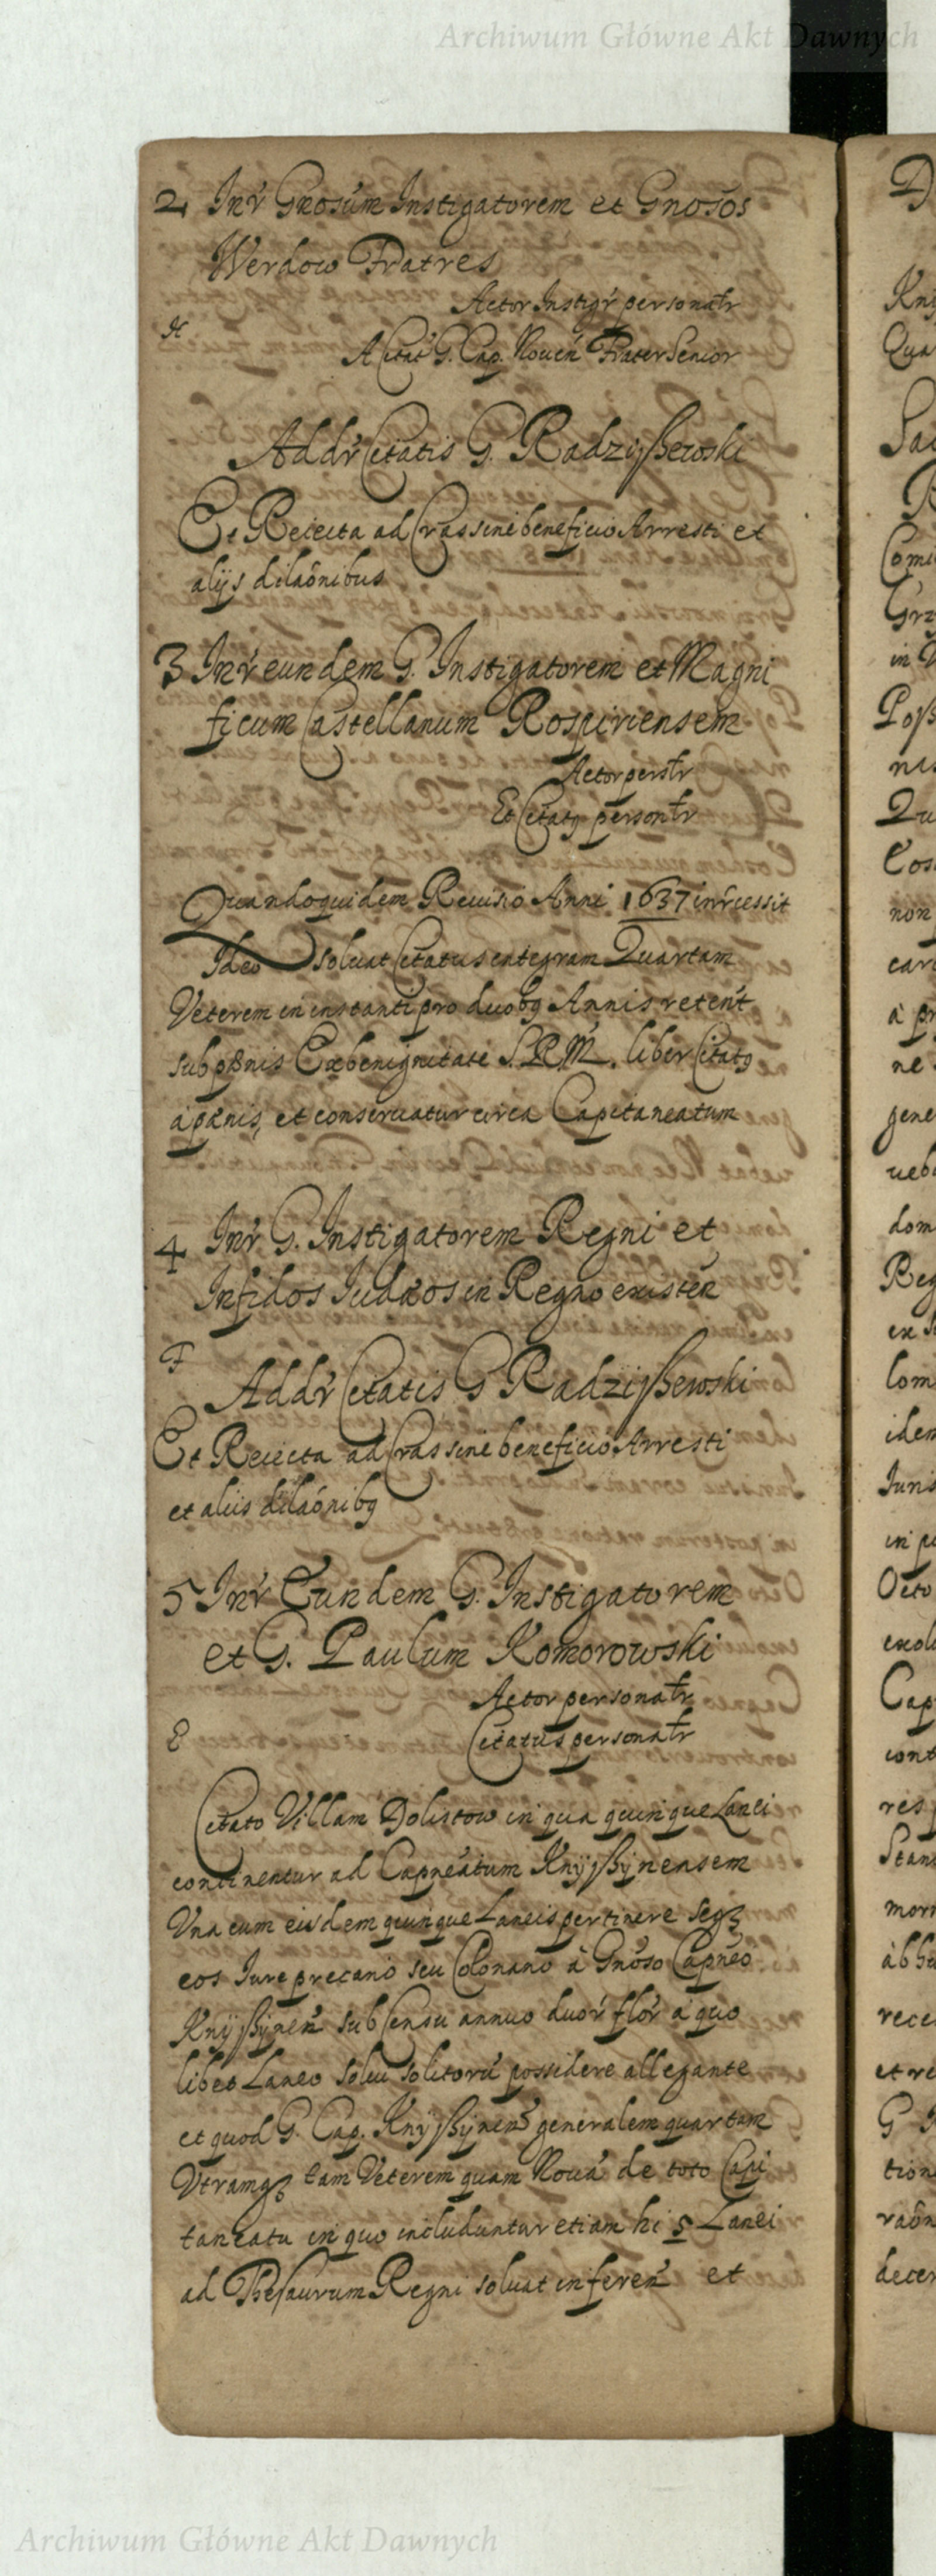 Archiwum Główne Akt Dawnych
2 Inr̃ Gnosũm Instigatorem et Gnosõs
Werdow Fratres
Actor Instigr̃ personat̃r
A Citat̃ G. Cap. Noueñ Frater Senior
Addr̃ Citatis G. Radziſzewski
Et Reiecta ad Cras sine beneficio Arresti et
alijs dilaõnibus
3 Inr̃ eundem G. Instigatorem et Magni
ficum Castellanum Rospiriensem
Actor perst̃r
Et Citatq persont̃r
Quandoquidem Reuisio Anni 1637 inr̃cessit
Ideo soluat Citatus integram Quartam
Veterem in instanti pro duobq Annis retent̃
sub pænis Ex benignitate S.R.M. liber Citatq
à pænis, et conseruatur circa Capitaneatum
4 Inr̃ G. Instigatorem Regni et
Infidos Iudæos in Regno existeñ
F
Addr̃ Citatis G Radziſzewski
Et Reiecta ad Cras sine beneficio Arresti
et aliis dilaõnibq
5 Inr̃ Eundem G. Instigatorem
et G. Paulum Komorowski
Actor personat̃r
Citatus personat̃r
Citato Villam Dolistow in qua quinque Lanei
continentur ad Capneãtum Knijſzijnensem
Vna cum eisdem quinque Laneis pertinere seqʒ
eos Iure precario seu Colonario à Gnõso Capnẽo
Knijſzijneñ sub Censu annuo duor̃ flor̃ à quo
libet Laneo solui solitorũ possidere allegante
et quod G. Cap. Knijſzijneñ generalem quartam
Vtramqʒ tam Veterem quam Nouã de toto Capi
taneatu in quo includuntur etiam hi 5 Lanei
ad Thesaurum Regni soluat infereñ et
Archiwum Główne Akt Dawnych